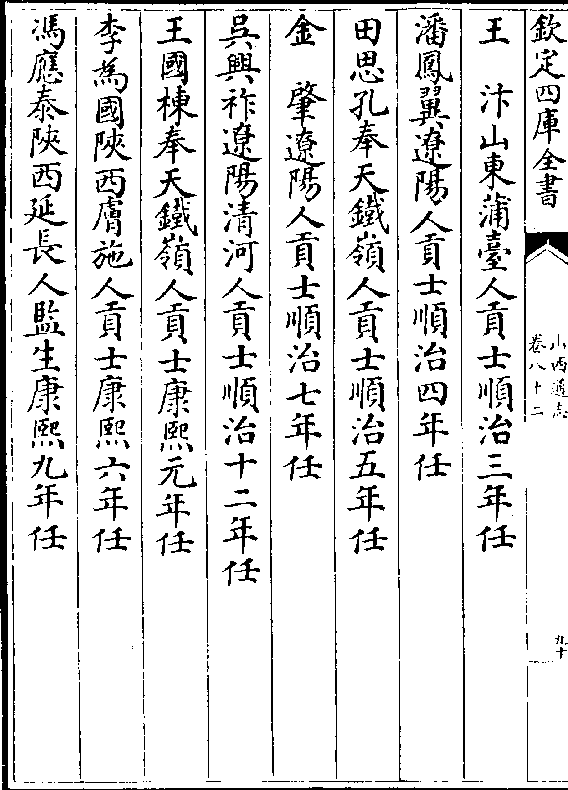 欽定四庫全書
山西通志
卷八十二
九十
王　汴山東蒲臺人貢士順治三年任
潘鳳翼遼陽人貢士順治四年任
田思孔奉天鐵嶺人貢士順治五年任
金　肇遼陽人貢士順治七年任
吳興祚遼陽清河人貢士順治十二年任
王國棟奉天鐵嶺人貢士康熙元年任
李為國陝西膚施人貢士康熙六年任
馮應泰陝西延長人監生康熙九年任